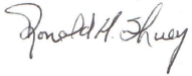 Ronald H. Shuey